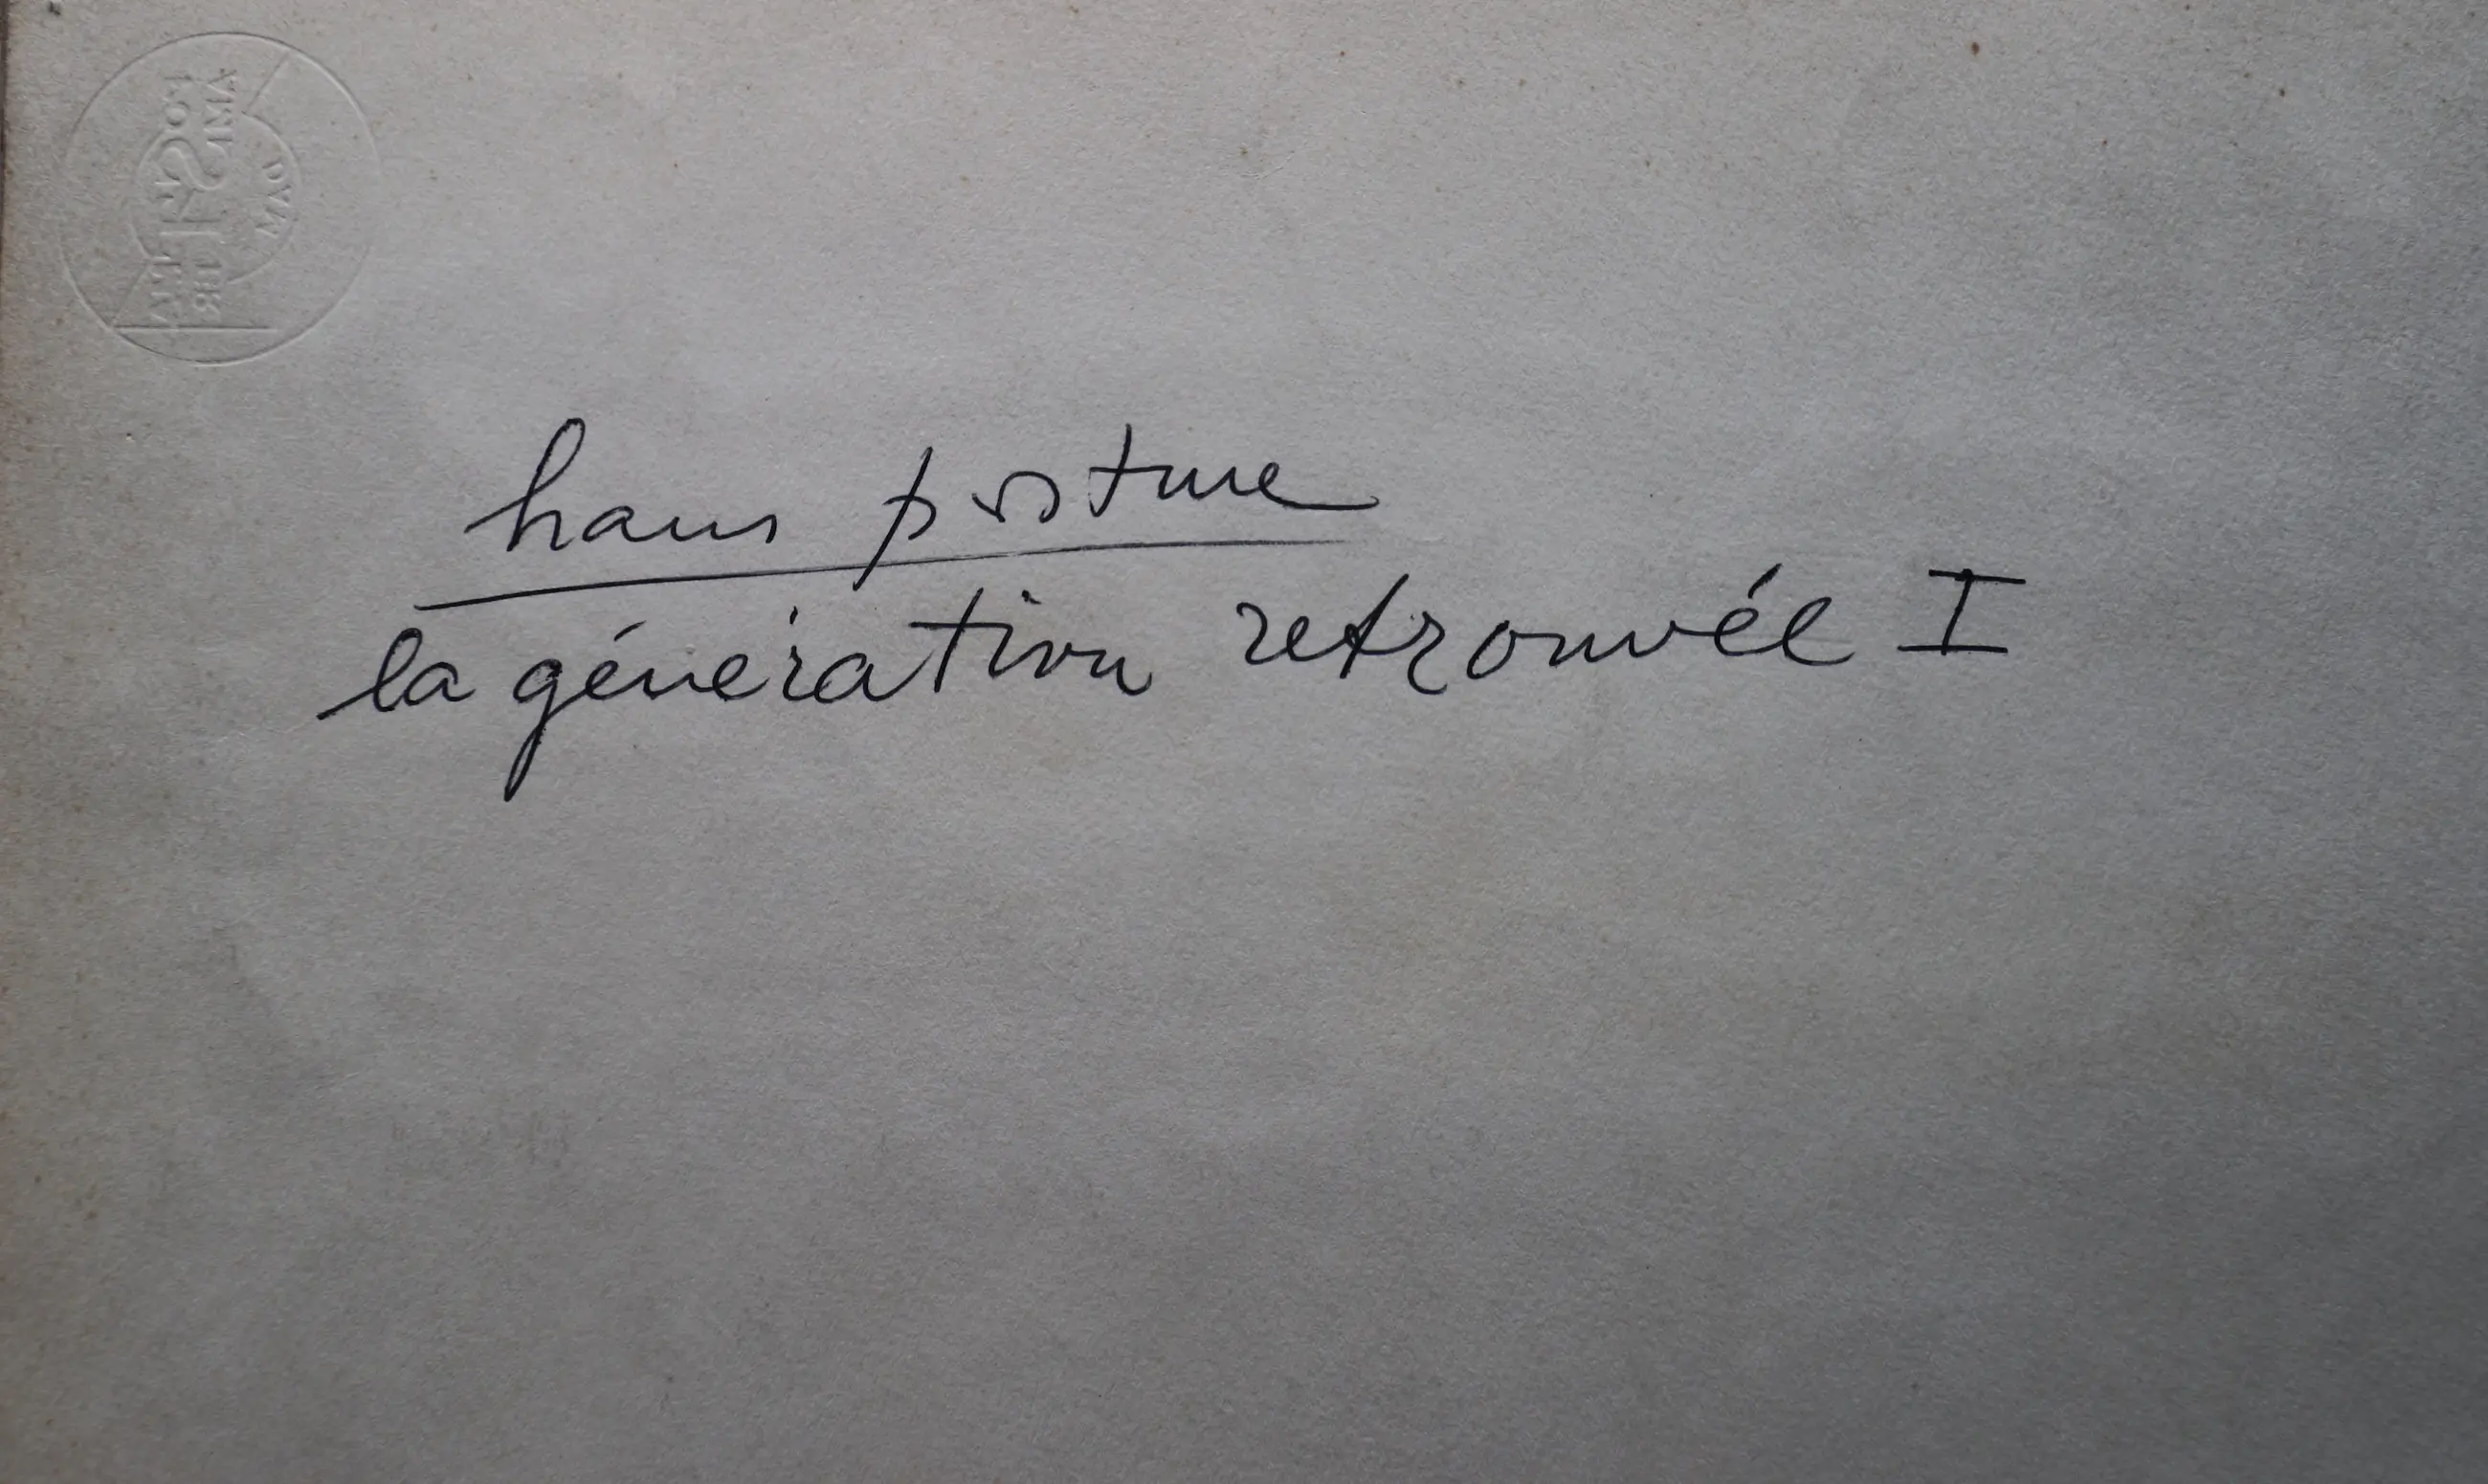 hans postme
la génération retrouvée I